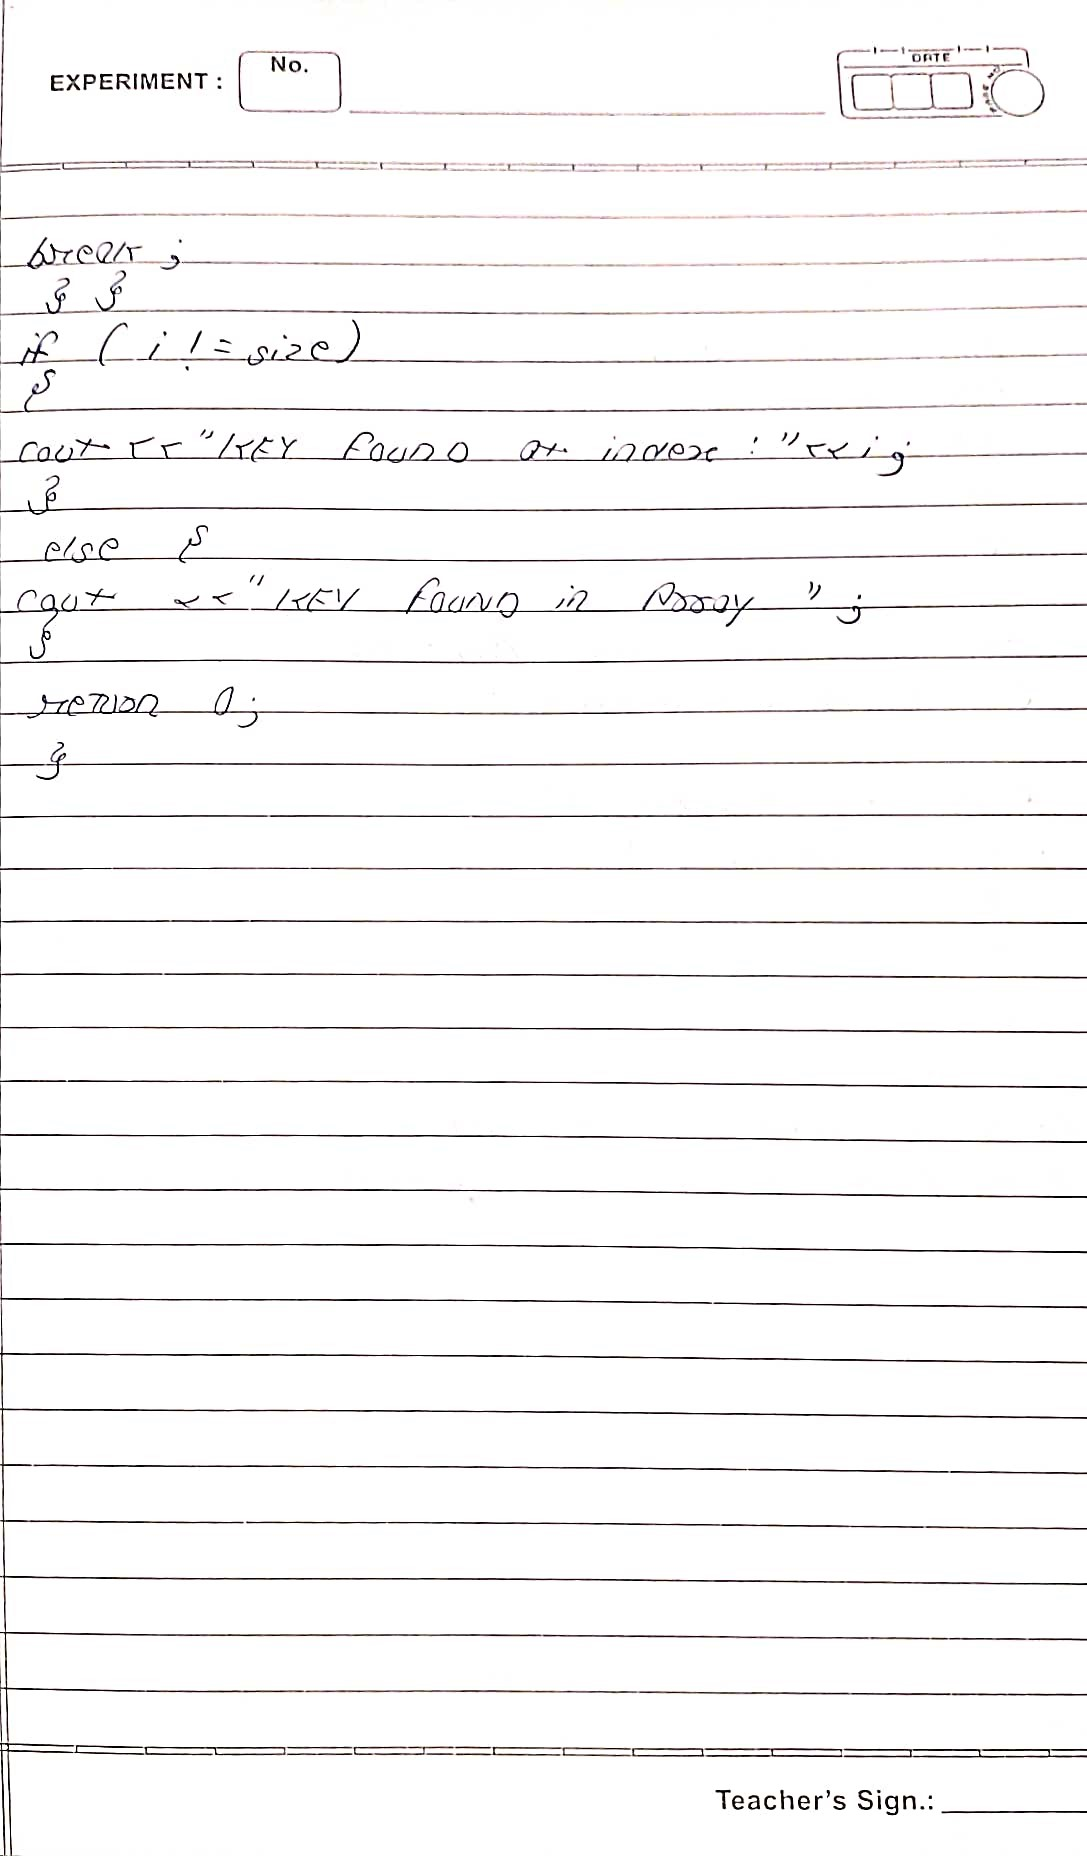 EXPERIMENT :
No.
DATE
break ;
} }
if ( i != size)
{
cout << "KEY Found at index : "<<i;
}
else {
cout << "KEY FOUND in Array " ;
}
return 0;
}
Teacher's Sign.: